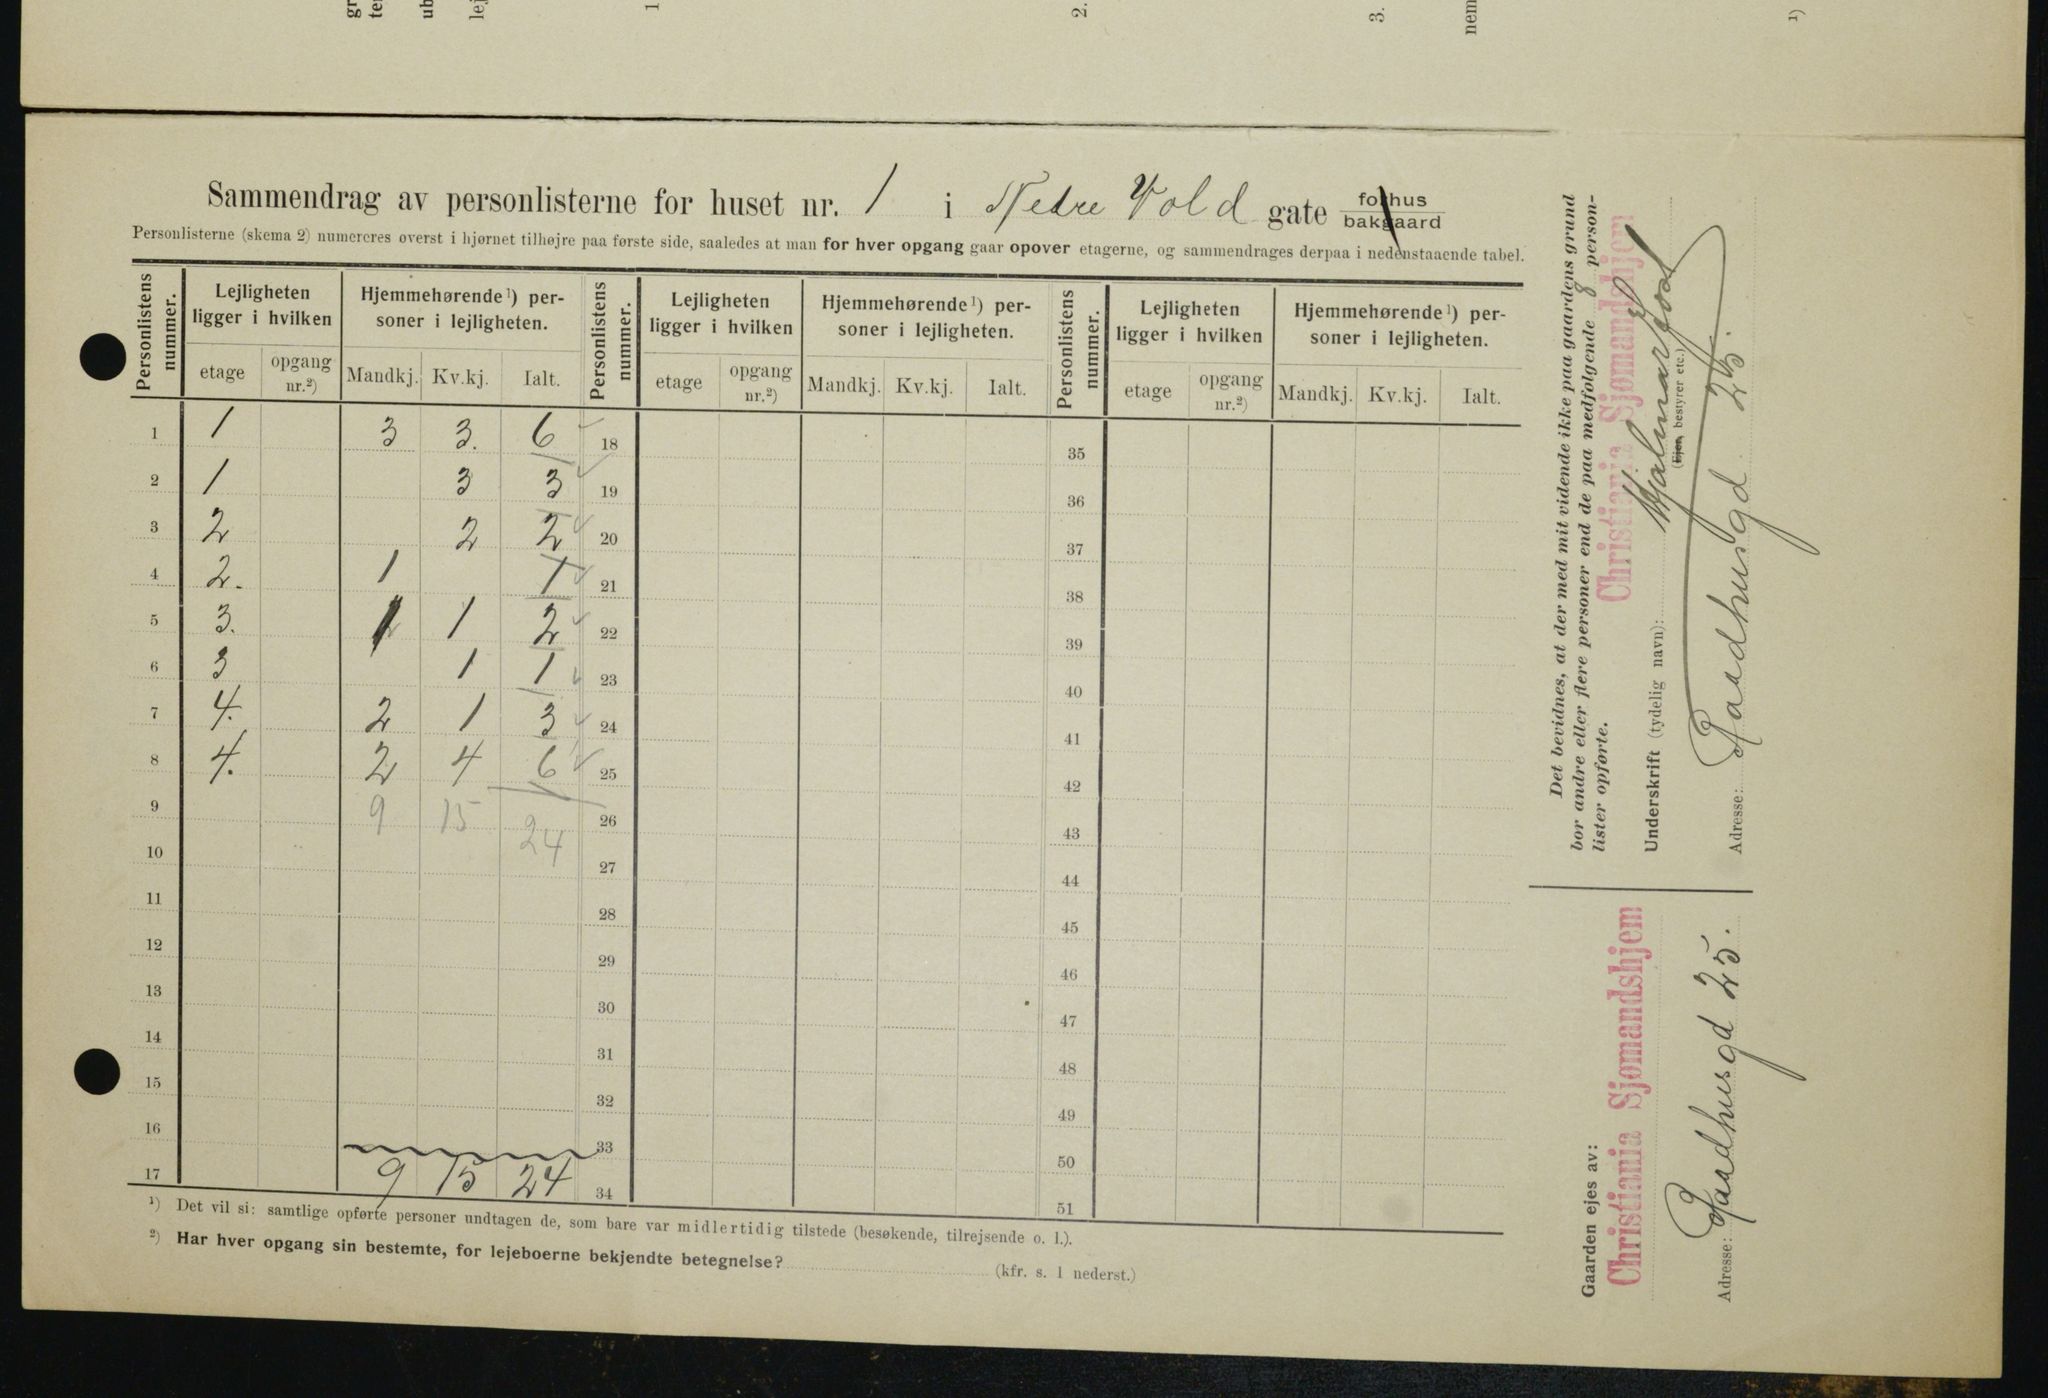 Sammendrag av personlisterne for huset nr. 1 i Nedre Vold gate forhus bakgaard
Personlisterne (skema 2) numereres øverst i hjørnet tilhøjre paa første side, saaledes at man for hver opgang gaar opover etagerne, og sammendrages derpaa i nedenstaaende tabel.
Personlistens nummer. Lejligheten ligger i hvilken Hjemmehørende ¹) personer i lejligheten. Personlistens nummer. Lejligheten ligger i hvilken Hjemmehørende ¹) personer i lejligheten. Personlistens nummer. Lejligheten ligger i hvilken Hjemmehørende ¹) personer i lejligheten.
etage opgang nr.²) Mandkj. Kv.kj. Ialt. etage opgang nr.²) Mandkj. Kv.kj. Ialt. etage opgang nr.²) Mandkj. Kv.kj. Ialt.
1 1 3 3. 6 18 35
2 1 3 3 19 36
3 2 2 2 20 37
4 2. 1 1 21 38
5 3. 1 1 2 22 39
6 3 1 1 23 40
7 4. 2 1 3 24 41
8 4. 2 4 6 25 42
9 9 15 24 26 43
10 27 44
11 28 45
12 29 46
13 30 47
14 31 48
15 32 49
16 33 50
17 9 15 24 34 51
¹) Det vil si: samtlige opførte personer undtagen de, som bare var midlertidig tilstede (besøkende, tilrejsende o. l.).
²) Har hver opgang sin bestemte, for lejeboerne bekjendte betegnelse? (kfr. s. 1 nederst.)
Det bevidnes, at der med mit vidende ikke paa gaardens grund
bor andre eller flere personer end de paa medfølgende 8 person-
lister opførte.
Christiania Sjømandshjem
Underskrift (tydelig navn): Hjalmar
(Ejer, bestyrer etc.)
Adresse: Raadhusgd 25.
Gaarden ejes av:
Christiania Sjømandshjem
Adresse: Raadhusgd 25.
1
2.
3.
nem
¹)